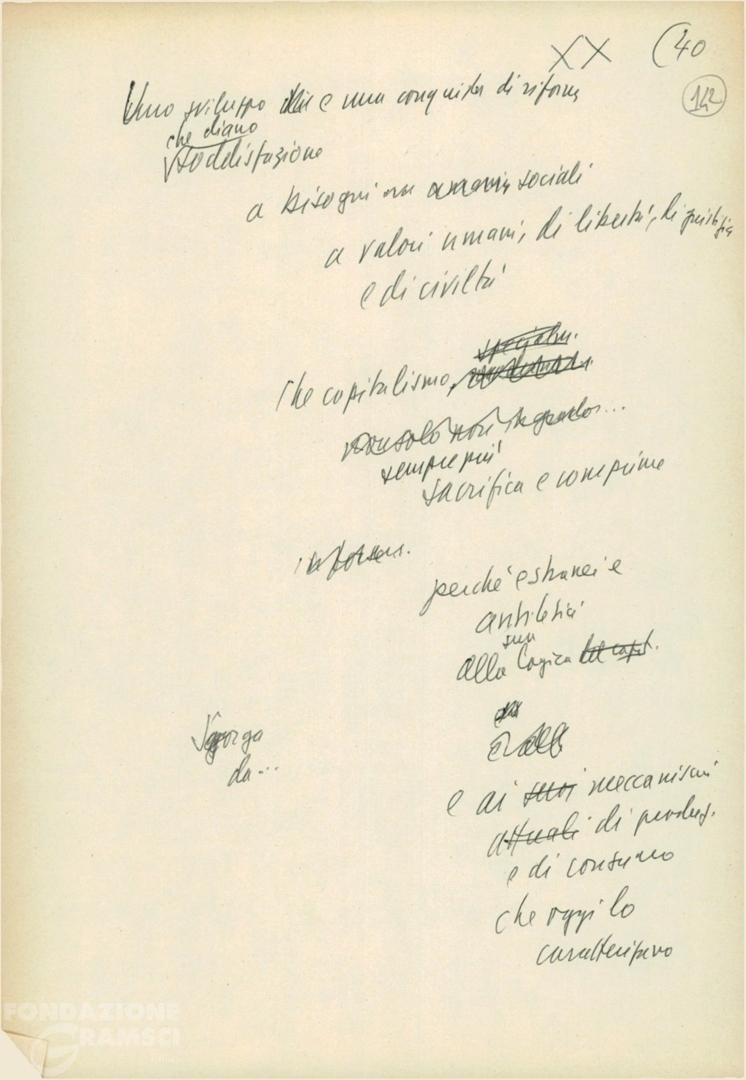 XX (40
142
Uno sviluppo e una conquista di riforme
che diano
soddisfazione
a bisogni sociali
a valori umani, di libertà, di giustizia
e di civiltà
che capitalismo,
specialm.
non solo non
sempre più
sacrifica e comprime
perché estranei e
antitetici
sua
alla logica del capit.
Sgorga
da...
e ai suoi meccanismi
attuali di produz.
e di consumo
che oggi lo
caratterizzano
FONDAZIONE
GRAMSCI